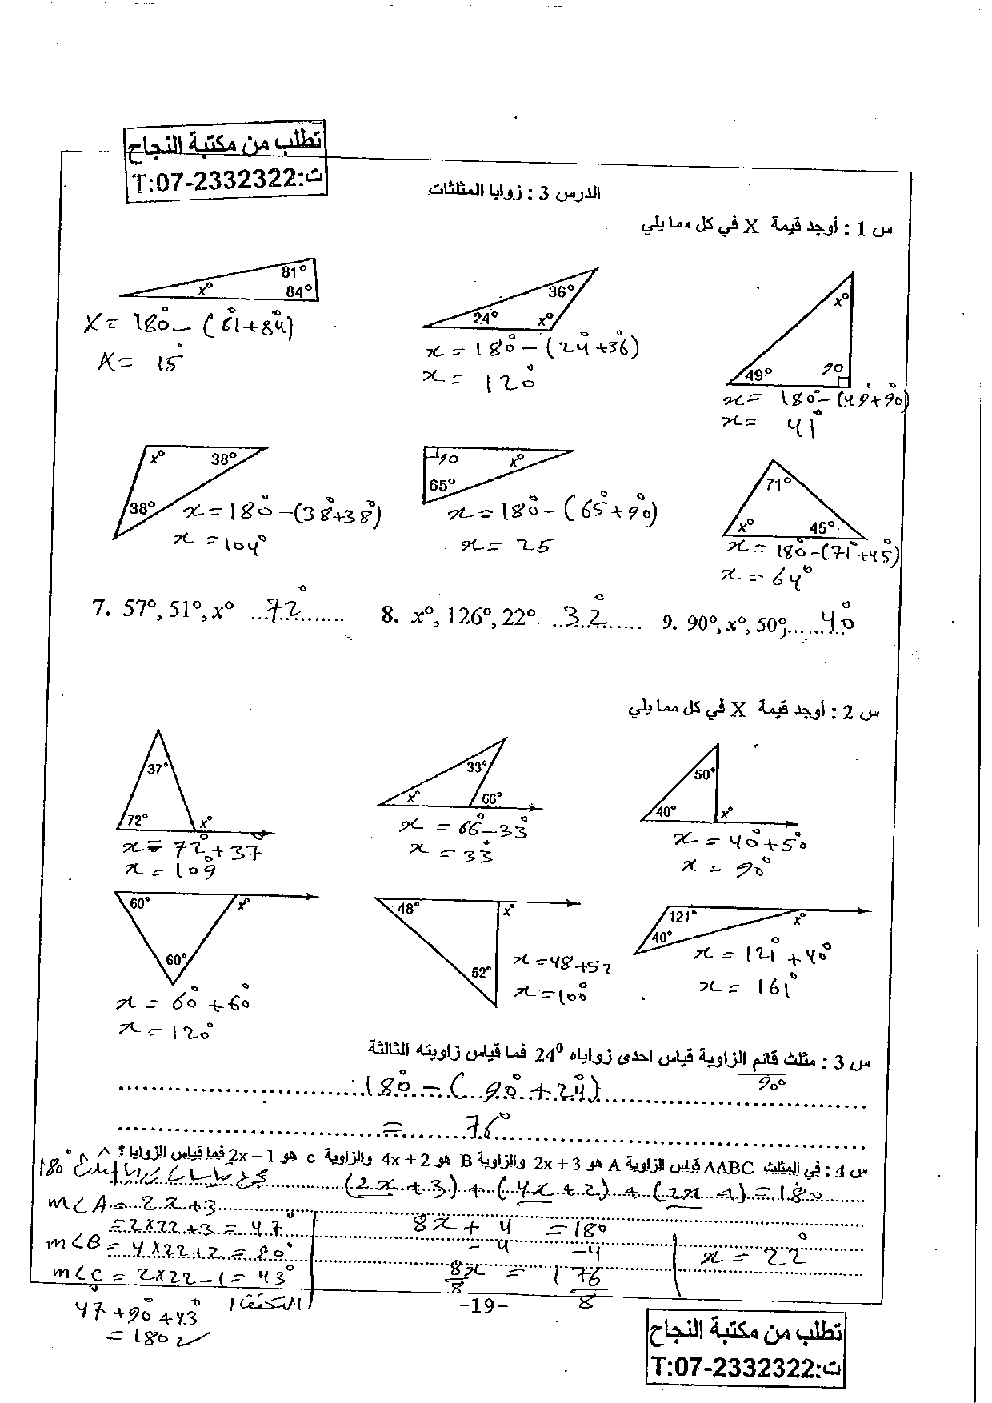 تطلب من مكتبة النجاح
ت:T:07-2332322
الدرس 3 : زوايا المثلثات
س 1 : أوجد قيمة X في كل مما يلي
81° x° 84°
X = 180° - (81° + 84°)
X = 15°
36° 24° x°
x = 180° - (24° + 36°)
x = 120°
x° 49° 90
x = 180° - (49° + 90°)
x = 41°
x° 38° 38°
x = 180° - (38° + 38°)
x = 104°
90 x° 65°
x = 180° - (65° + 90°)
x = 25
71° x° 45°
x = 180° - (71° + 45°)
x = 64°
7. 57°, 51°, x° 72°
8. x°, 126°, 22° 32°
9. 90°, x°, 50°, 40°
س 2 : أوجد قيمة X في كل مما يلي
37° 72° x°
x = 72° + 37°
x = 109°
33° x° 66°
x = 66° - 33°
x = 33°
50° 40° x°
x = 40° + 50°
x = 90°
60° x° 60°
x = 60° + 60°
x = 120°
48° x° 52°
x = 48 + 52
x = 100°
121° x° 40°
x = 121° + 40°
x = 161°
س 3 : مثلث قائم الزاوية قياس احدى زواياه 24⁰ فما قياس زاويته الثالثة
90°
180° - (90° + 24°)
= 76°
س 4 : في المثلث AABC قياس الزاوية A هو 2x + 3 والزاوية B هو 4x + 2 والزاوية c هو 2x – 1 فما قياس الزوايا ؟
180°
(2x + 3) + (4x + 2) + (2x - 1) = 180
m∠A = 2x + 3
= 2x22 + 3 = 47°
m∠B = 4x22 + 2 = 90°
m∠C = 2x22 - 1 = 43°
47 + 90° + 43°
= 180 ✓
8x + 4 = 180
- 4 -4
8x = 176
8 8
x = 22°
-19-
تطلب من مكتبة النجاح
ت:T:07-2332322